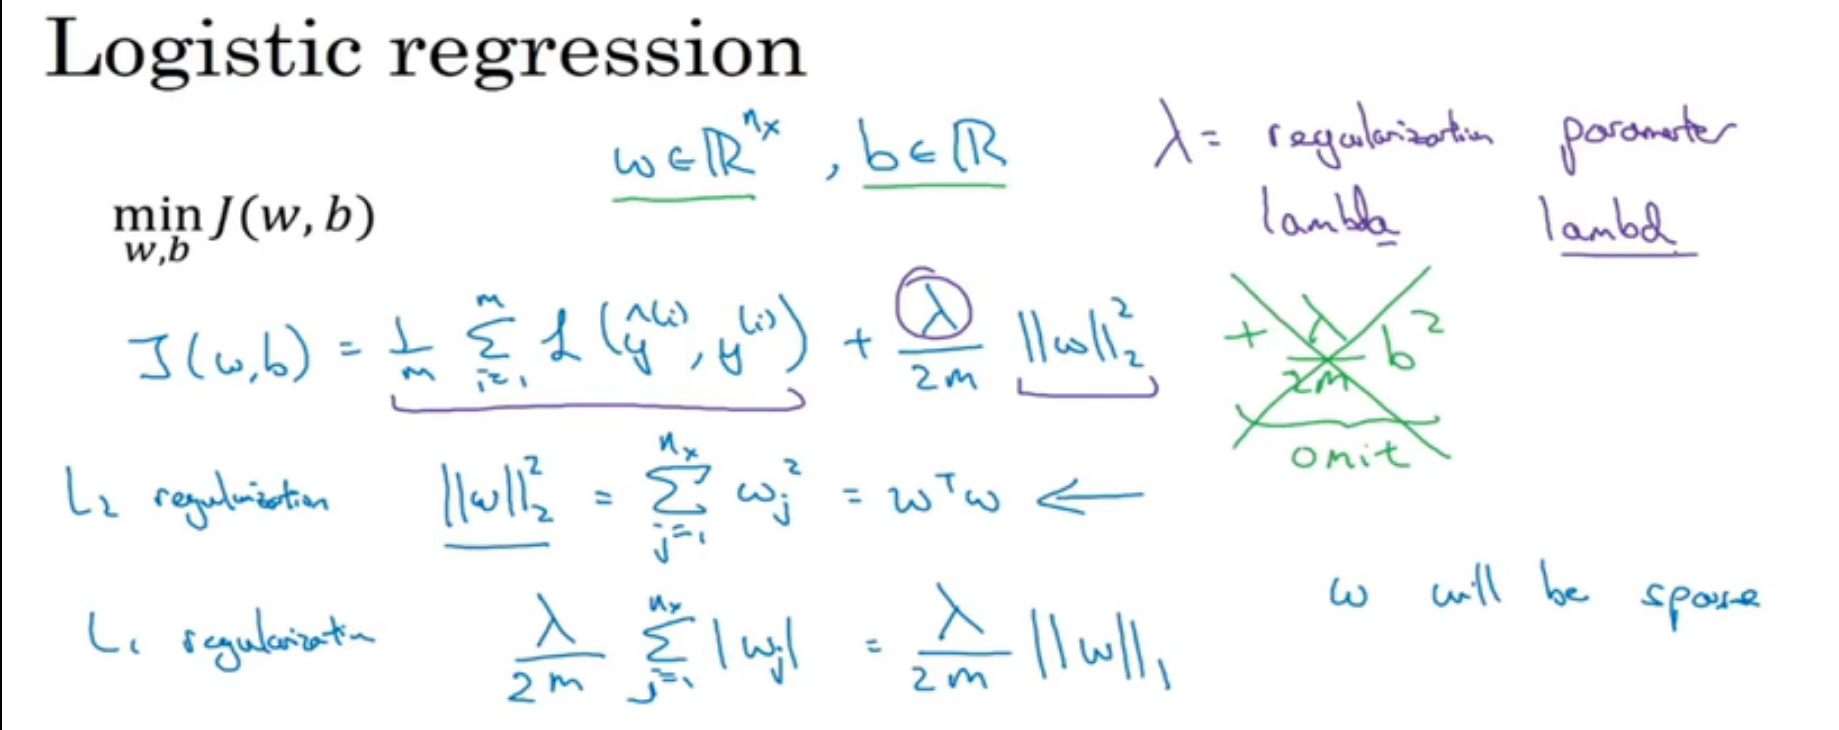 Logistic regression
w ∈ ℝ^{n_x}, b ∈ ℝ
λ = regularization parameter
lambda lambd
min_{w,b} J(w, b)
J(w,b) = \frac{1}{m} \sum_{i=1}^{m} ℒ(ŷ^{(i)}, y^{(i)}) + \frac{λ}{2m} ||w||_2^2 + \frac{λ}{2m} b^2
omit
L_2 regularization ||w||_2^2 = \sum_{j=1}^{n_x} w_j^2 = w^T w ←
L_1 regularization \frac{λ}{2m} \sum_{j=1}^{n_x} |w_j| = \frac{λ}{2m} ||w||_1
w will be sparse